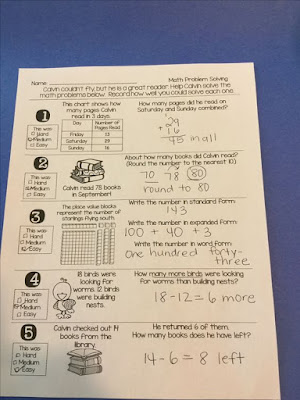 Name: Math Problem Solving
Calvin couldn't fly, but he is a great reader! Help Calvin solve the
math problems below. Record how well you could solve each one.
1
This was:
Hard
Medium
Easy
This chart shows
how many pages Calvin
read in 3 days.
Day Number of Pages Read
Friday
Saturday 29
Sunday 16
How many pages did he read on
Saturday and Sunday combined?
29
+ 16
45 in all
2
This was:
Hard
Medium
Easy
Calvin read 78 books
in September!
About how many books did Calvin read?
(Round the number to the nearest 10)
70 78 80
round to 80
3
This was:
Hard
Medium
Easy
The place value blocks
represent the number of
starlings flying south.
Write the number in standard form:
143
Write the number in expanded form:
100 + 40 + 3
Write the number in word form:
one hundred forty-
three
4
This was:
Hard
Medium
Easy
18 birds were
looking for
worms. 12 birds
were building
nests.
How many more birds were looking
for worms than building nests?
18-12=6 more
5
This was:
Hard
Medium
Easy
Calvin checked out 14
books from the
library.
He returned 6 of them.
How many books does he have left?
14-6=8 left